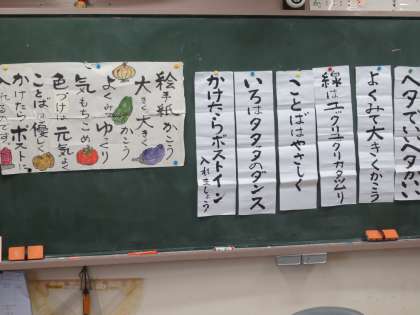 ヘタでいいヘタがいい
よくみて大きくかこう
線はユックリユックリカタツムリ
ことばはやさしく
いろはタタタのダンス
かけたらポストイン
入れましょう
絵手紙かこう
大きく大きく
かこう
よくみてゆっくり
気もちこめ
色づけは元気よく
ことばは優しく
かけたらポストに
入れるのです